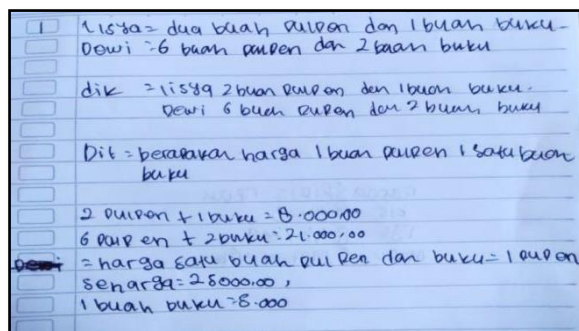 1 Lisya = dua buah pulpen dan 1 buah buku
Dewi = 6 buah pulpen dan 2 buah buku
dik = lisya 2 buah pulpen dan 1 buah buku.
Dewi 6 buah pulpen dan 2 buah buku
Dit = berapakah harga 1 buah pulpen 1 satu buah
buku
2 pulpen + 1 buku = 8.000,00
6 pulpen + 2 buku = 21.000,00
= harga satu buah pulpen dan buku = 1 pulpen
seharga = 25000,00,
1 buah buku = 8.000